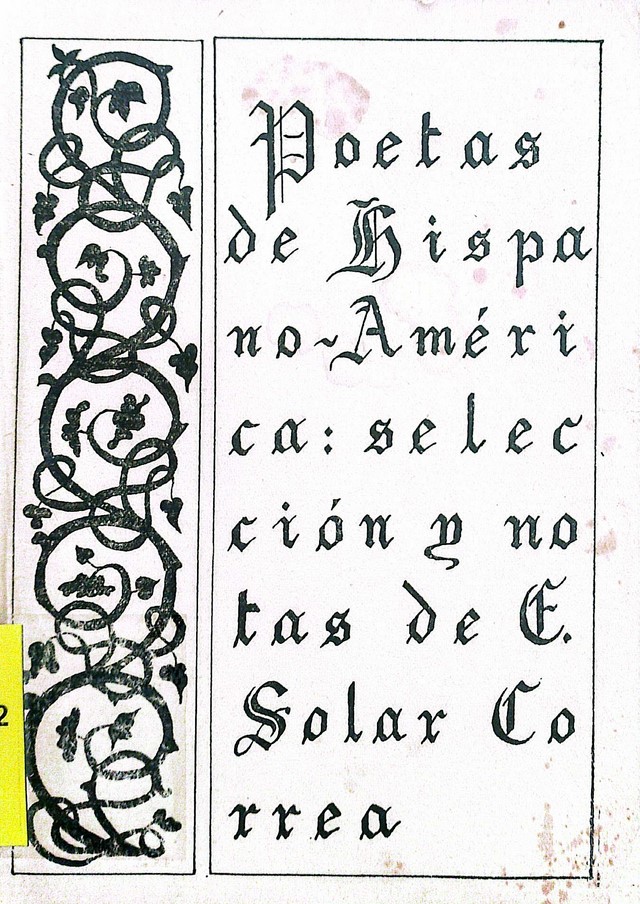 Poetas
de Hispa
no-Améri
ca: selec
ción y no
tas de E.
Solar Co
rrea
2